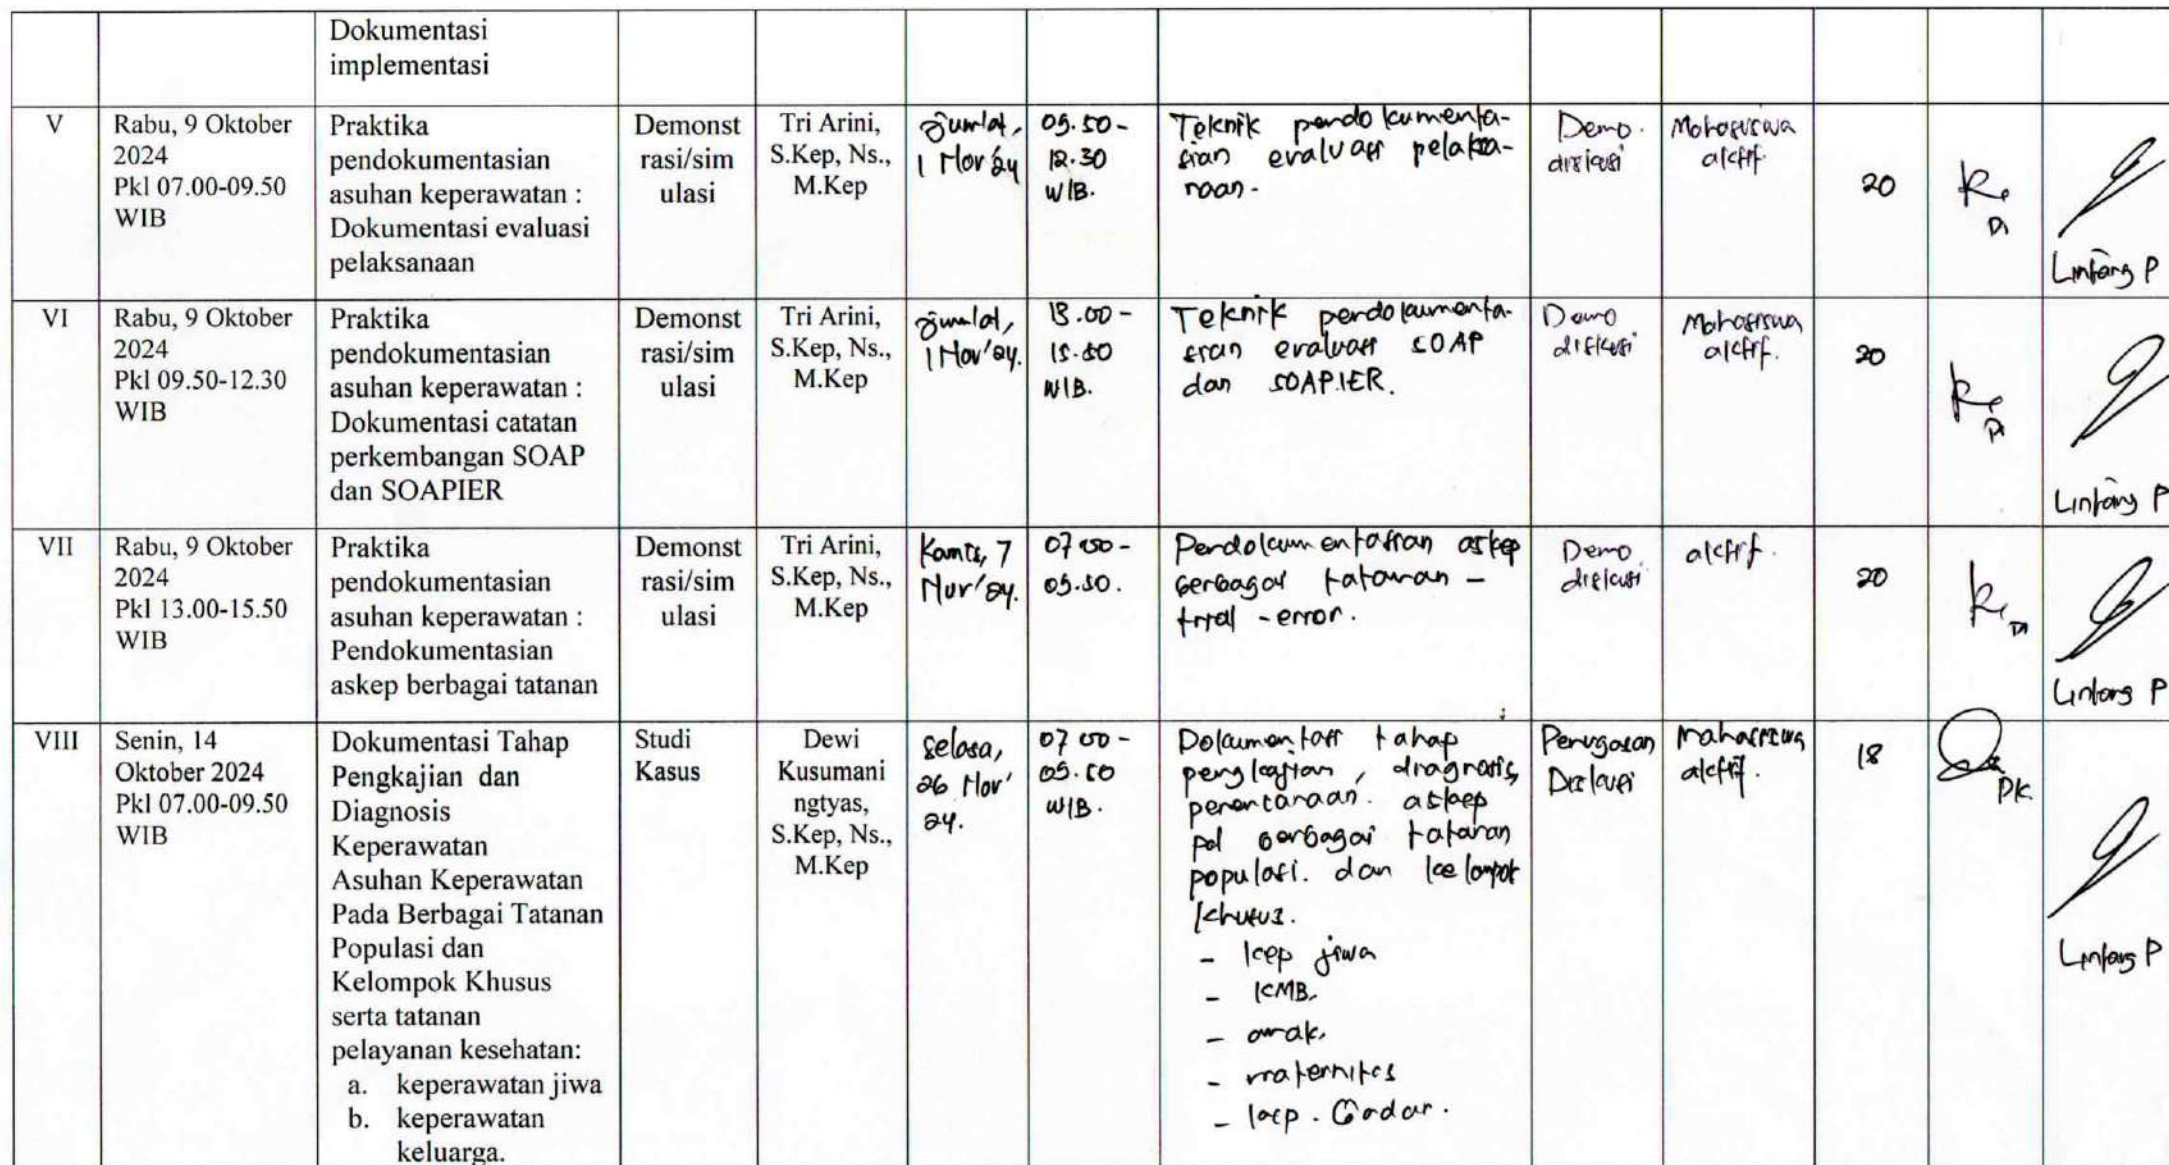 Dokumentasi
implementasi
V
Rabu, 9 Oktober
2024
Pkl 07.00-09.50
WIB
Praktika
pendokumentasian
asuhan keperawatan :
Dokumentasi evaluasi
pelaksanaan
Demonst
rasi/sim
ulasi
Tri Arini,
S.Kep, Ns.,
M.Kep
1 Nov 24
09.50-
12.30
WIB.
Teknik pendokumenta-
sian evaluasi pelaksa-
naan.
Demo.
diskusi
Mahasiswa
aktif.
20
Lintang P
VI
Rabu, 9 Oktober
2024
Pkl 09.50-12.30
WIB
Praktika
pendokumentasian
asuhan keperawatan :
Dokumentasi catatan
perkembangan SOAP
dan SOAPIER
Demonst
rasi/sim
ulasi
Tri Arini,
S.Kep, Ns.,
M.Kep
1 Nov'24.
13.00-
15.50
WIB.
Teknik pendokumenta-
sian evaluasi SOAP
dan SOAPIER.
Demo
diskusi
Mahasiswa
aktif.
20
Lintang P
VII
Rabu, 9 Oktober
2024
Pkl 13.00-15.50
WIB
Praktika
pendokumentasian
asuhan keperawatan :
Pendokumentasian
askep berbagai tatanan
Demonst
rasi/sim
ulasi
Tri Arini,
S.Kep, Ns.,
M.Kep
Kamis, 7
Nov'24.
07.00-
09.50.
Pendokumentasian askep
berbagai tatanan -
trial - error.
Demo
diskusi
aktif.
20
Lintang P
VIII
Senin, 14
Oktober 2024
Pkl 07.00-09.50
WIB
Dokumentasi Tahap
Pengkajian dan
Diagnosis
Keperawatan
Asuhan Keperawatan
Pada Berbagai Tatanan
Populasi dan
Kelompok Khusus
serta tatanan
pelayanan kesehatan:
a. keperawatan jiwa
b. keperawatan
keluarga.
Studi
Kasus
Dewi
Kusumani
ngtyas,
S.Kep, Ns.,
M.Kep
Selasa,
26 Nov'
24.
07.00-
09.50
WIB.
Dokumentasi tahap
pengkajian, diagnosis,
perencanaan. askep
pd berbagai tatanan
populasi. dan kelompok
khusus.
- kep jiwa
- KMB.
- anak.
- maternitas
- kep. Gadar.
Penugasan
Diskusi
Mahasiswa
aktif.
18
DK.
Lintang P